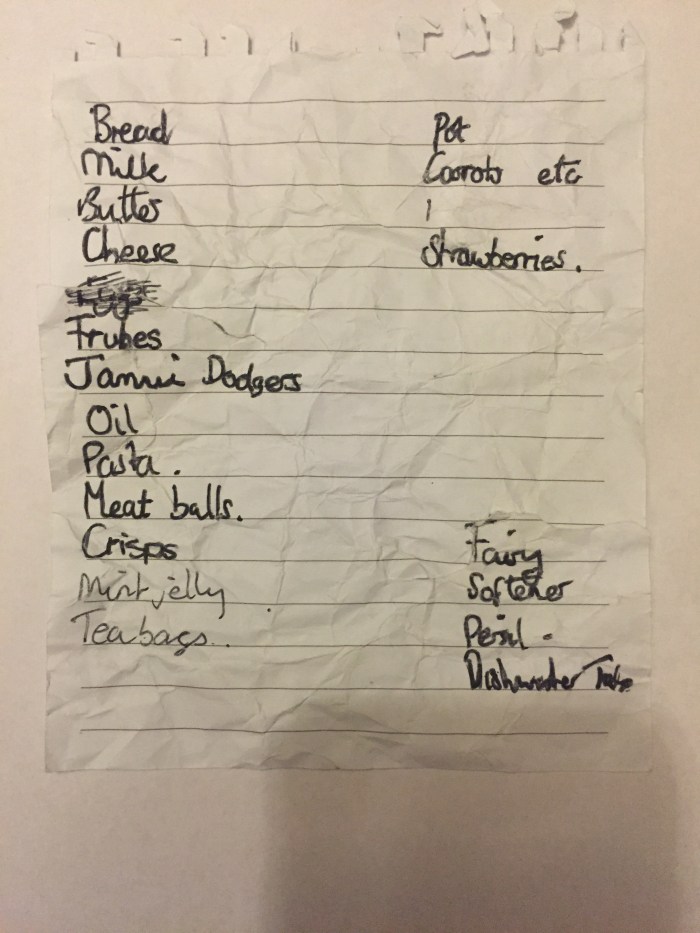 Bread
Milk
Butter
Cheese
Frubes
Jammi Dodgers
Oil
Pasta.
Meat balls.
Crisps
Mint jelly
Teabags..
Pot
Carrots etc
Strawberries.
Fairy
Softener
Persil -
Dishwasher